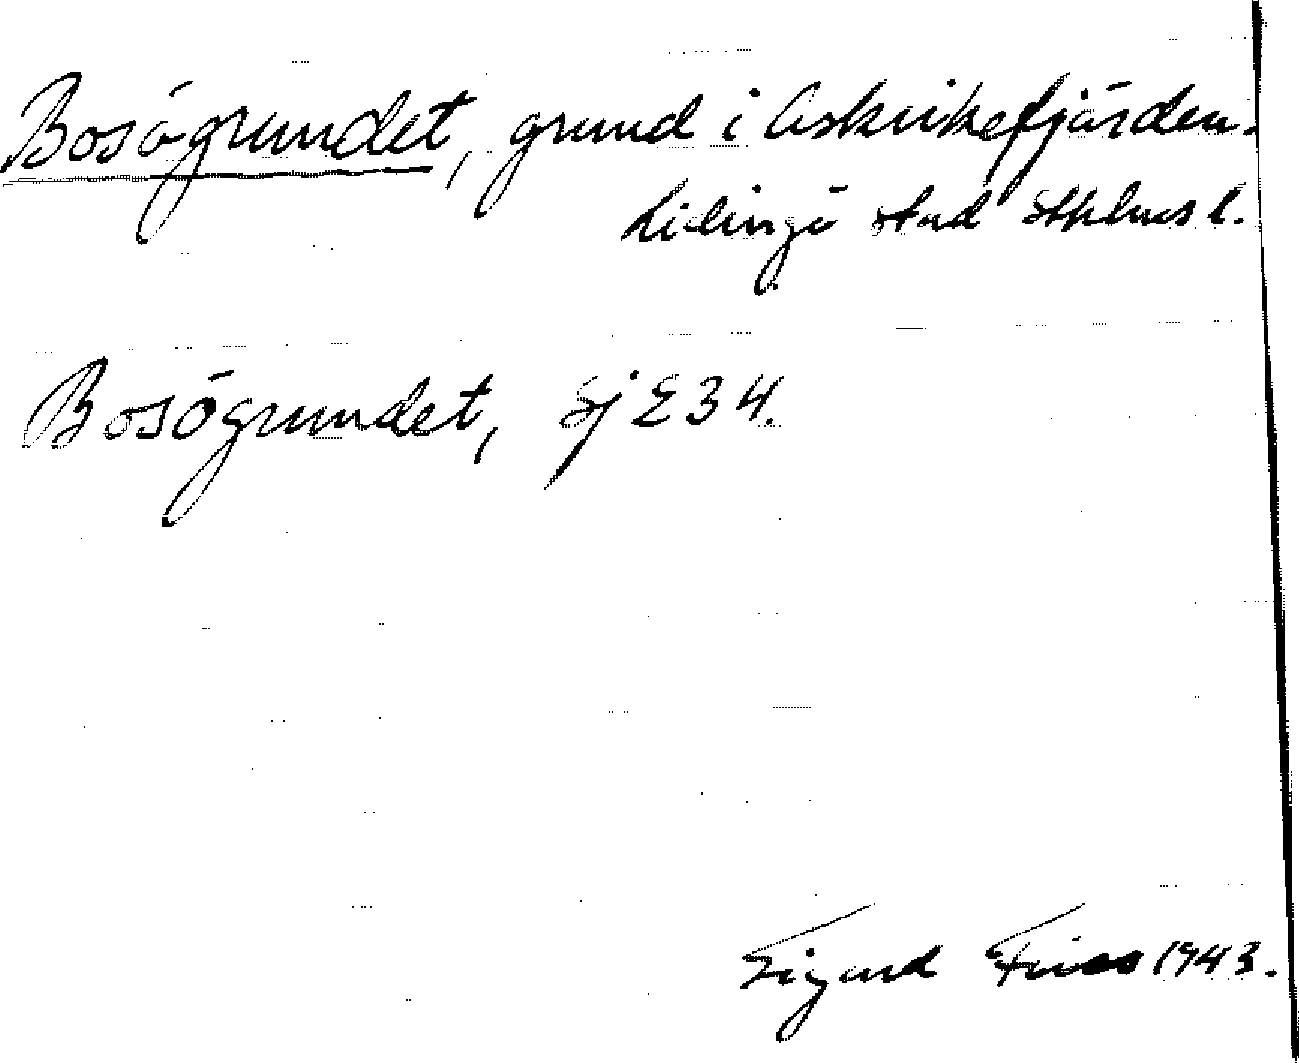 Bosögrundet, grund i Askrikefjärden.
Lidingö stad Sthlms l.
Bosögrundet, Sj E 34.
Sigurd Fries 1943.